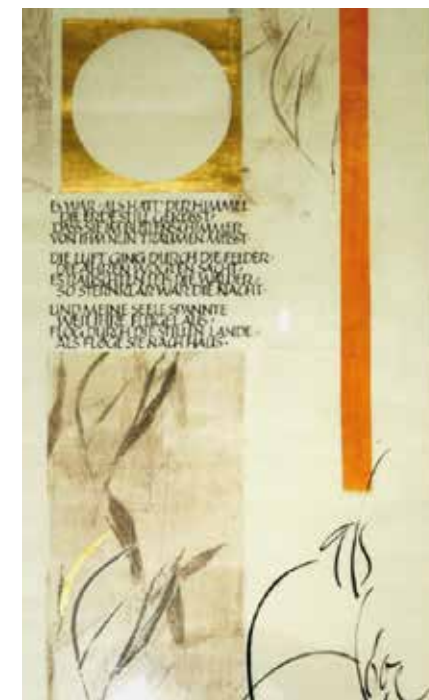 ES WAR ALS HÄTT' DER HIMMEL
DIE ERDE STILL GEKÜSST
DASS SIE IM BLÜTENSCHIMMER
VON IHM NUN TRÄUMEN MÜSST
DIE LUFT GING DURCH DIE FELDER·
DIE ÄHREN WOGTEN SACHT·
ES RAUSCHTEN LEIS DIE WÄLDER·
SO STERNKLAR WAR DIE NACHT·
UND MEINE SEELE SPANNTE
WEIT IHRE FLÜGEL AUS·
FLOG DURCH DIE STILLEN LANDE·
ALS FLÖGE SIE NACH HAUS·